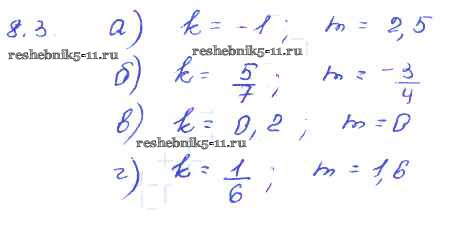 8.3. а) k = -1; m = 2,5
reshebnik5-11.ru reshebnik5-11.ru
б) k = 5/7; m = -3/4
в) k = 0,2; m = 0
reshebnik5-11.ru
г) k = 1/6; m = 1,6